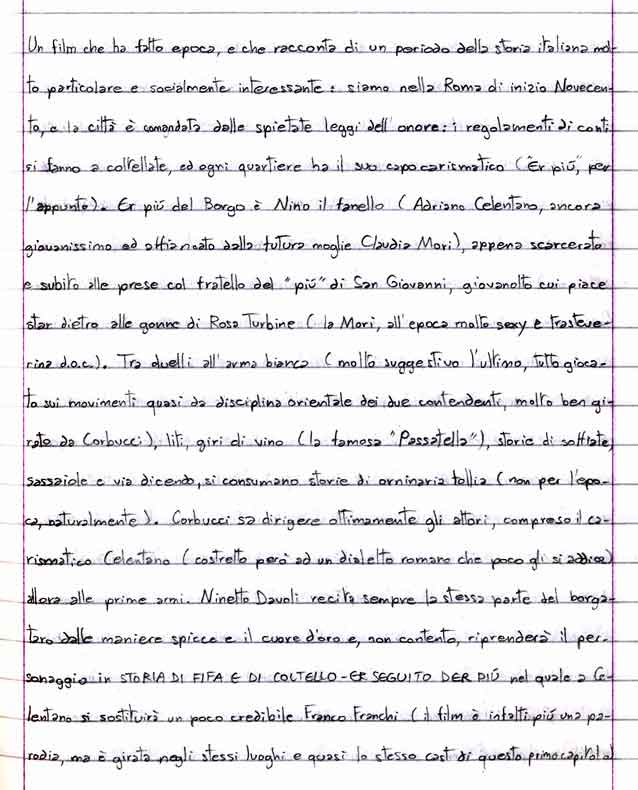 Un film che ha fatto epoca, e che racconta di un periodo della storia italiana mol-
to particolare e socialmente interessante: siamo nella Roma di inizio Novecen-
to, e la città è comandata dalle spietate leggi dell'onore: i regolamenti di conti
si fanno a coltellate, ed ogni quartiere ha il suo capo carismatico ("Er più", per
l'appunto). Er più del Borgo è Nino il fanello (Adriano Celentano, ancora
giovanissimo ed affiancato dalla futura moglie Claudia Mori), appena scarcerato
e subito alle prese col fratello del "più" di San Giovanni, giovanotto cui piace
star dietro alle gonne di Rosa Turbine (la Mori, all'epoca molto sexy e trasteve-
rina d.o.c.). Tra duelli all'arma bianca (molto suggestivo l'ultimo, tutto gioca-
to sui movimenti quasi da disciplina orientale dei due contendenti, molto ben gi-
rato da Corbucci), liti, giri di vino (la famosa "Passatella"), storie di soffiate,
sassaiole e via dicendo, si consumano storie di orninaria follia (non per l'epo-
ca, naturalmente). Corbucci sa dirigere ottimamente gli attori, compreso il ca-
rismatico Celentano (costretto però ad un dialetto romano che poco gli si addice)
allora alle prime armi. Ninetto Davoli recita sempre la stessa parte del borga-
taro dalle maniere spicce e il cuore d'oro e, non contento, riprenderà il per-
sonaggio in STORIA DI FIFA E DI COLTELLO - ER SEGUITO DER PIÚ nel quale a Ce-
lentano si sostituirà un poco credibile Franco Franchi (il film è infatti più una pa-
rodia, ma è girata negli stessi luoghi e quasi lo stesso cast di questo primo capitolo)